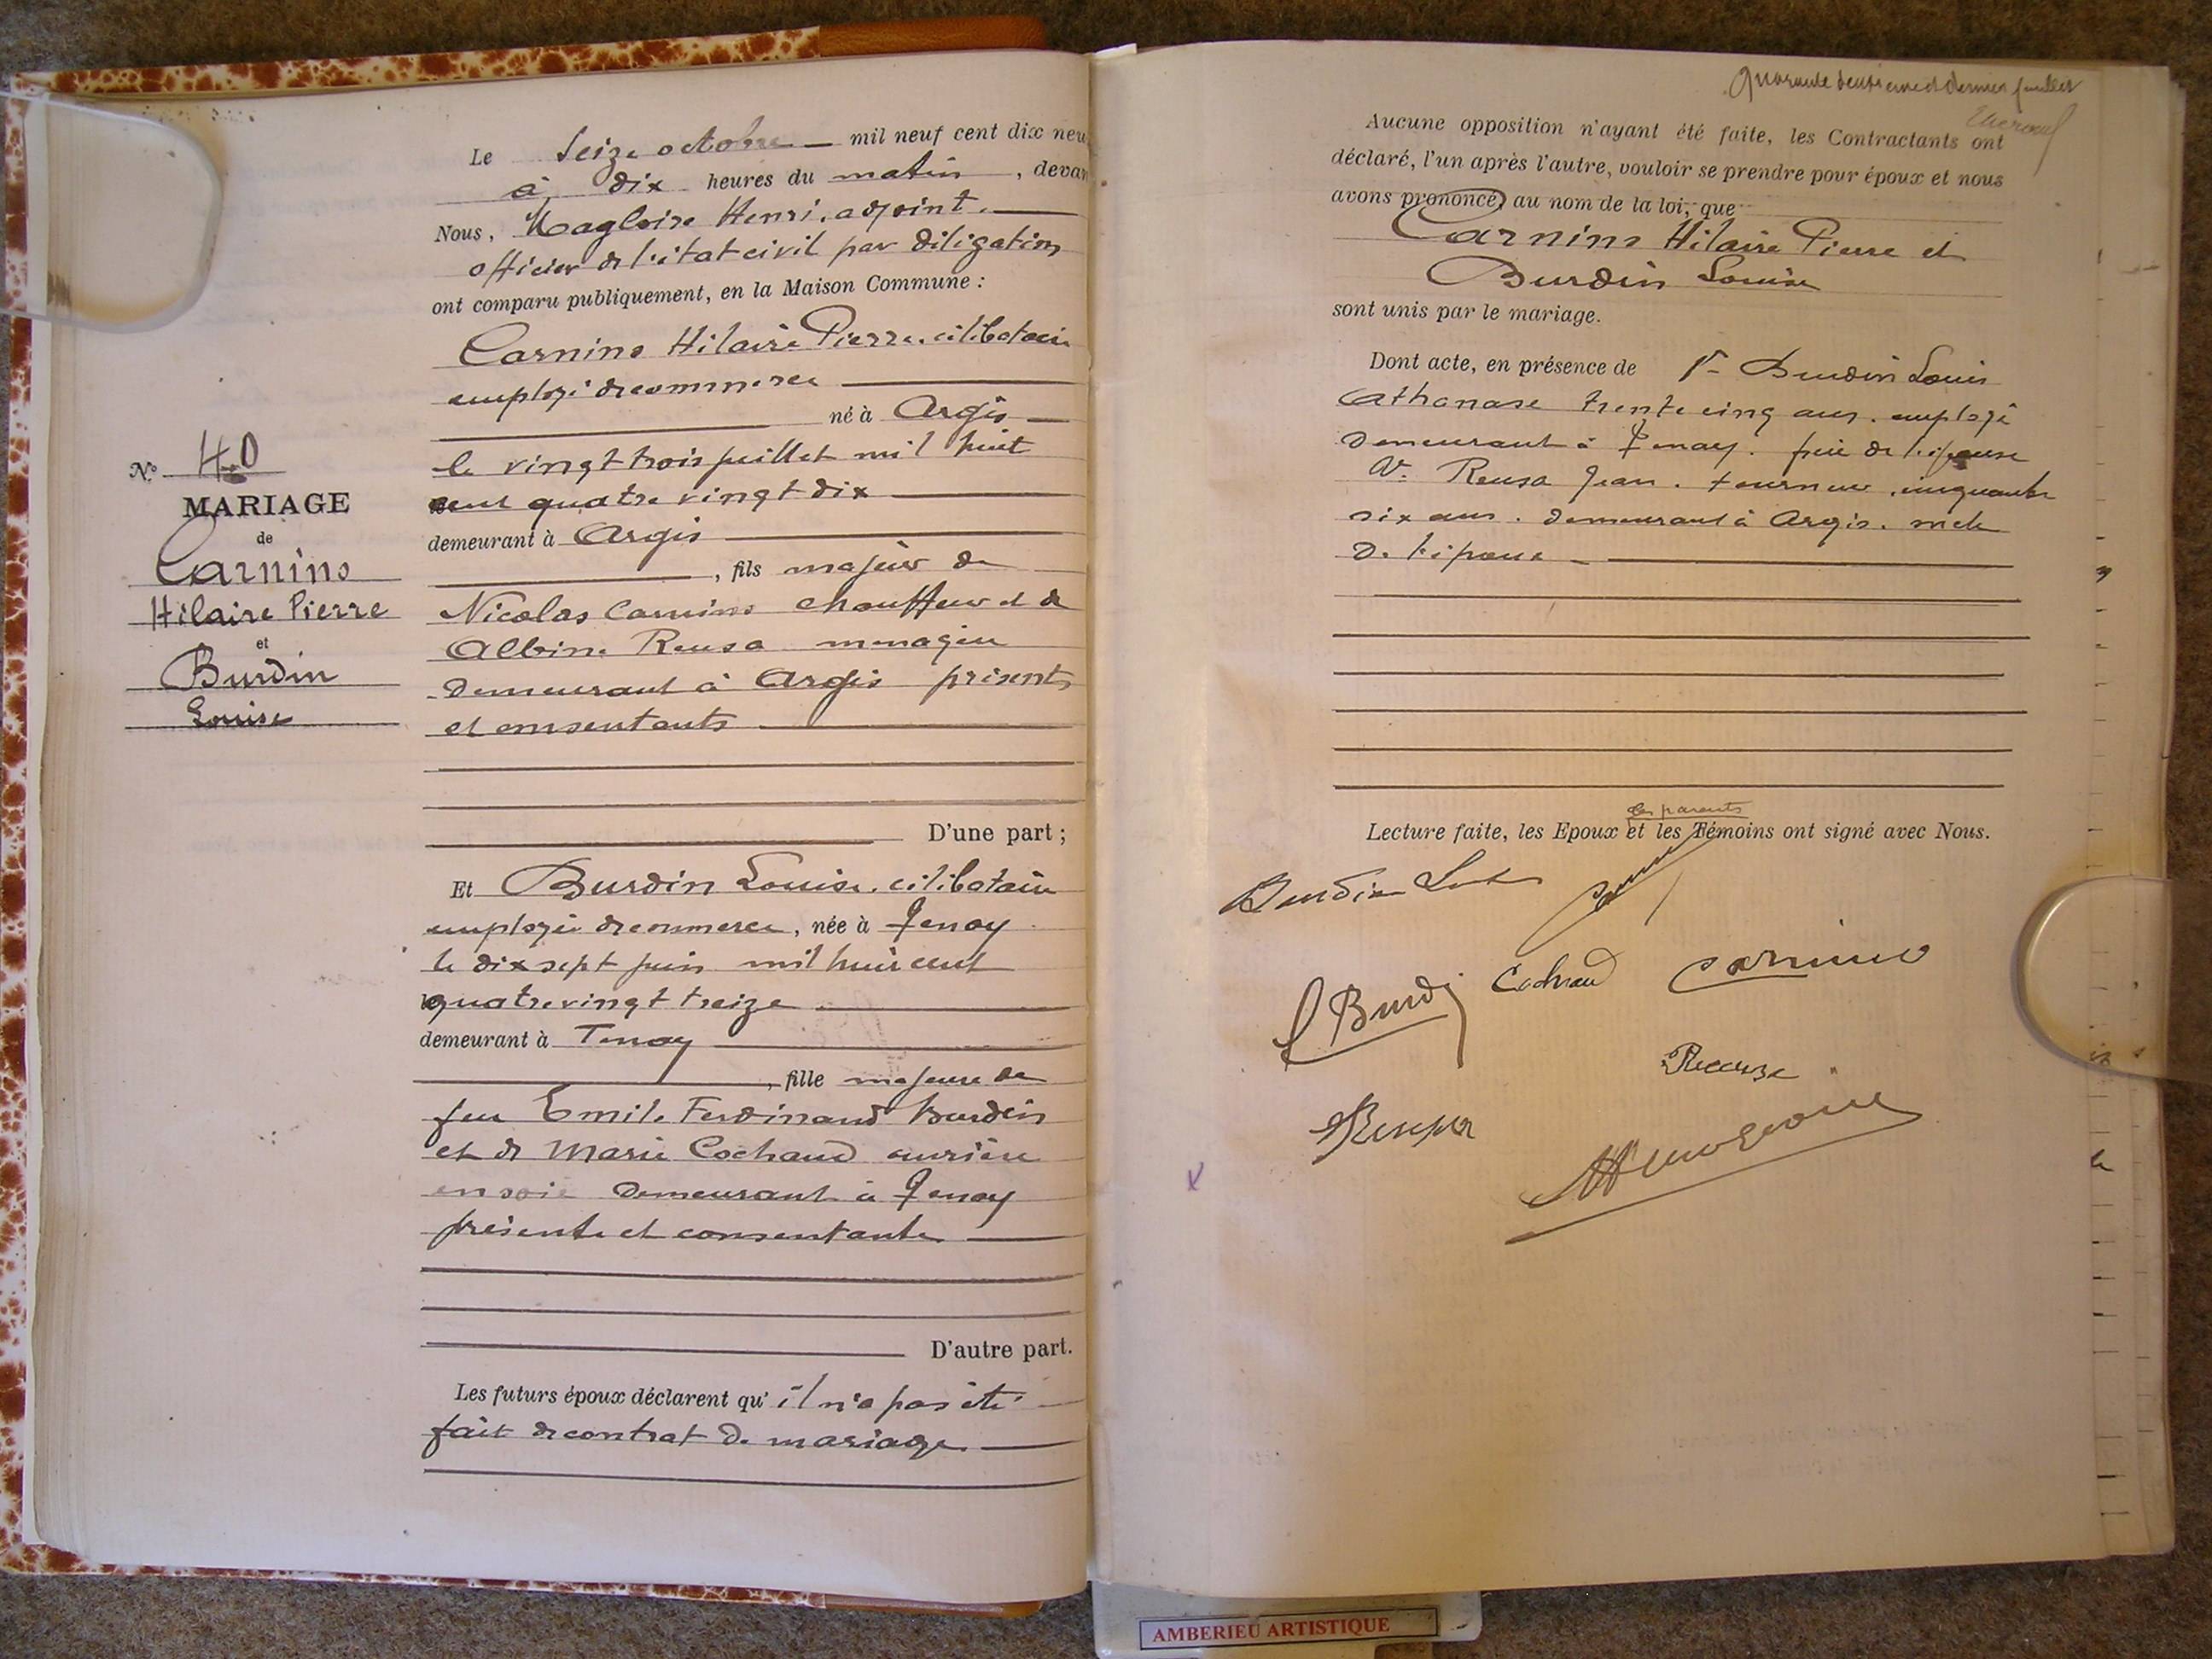 Le seize octobre mil neuf cent dix neu
à dix heures du matin, devan
Nous, Magloire Henri, adjoint
officier de l'état civil par délégation
ont comparu publiquement, en la Maison Commune :
Carnino Hilaire Pierre, célibataire
employé de commerce
né à Argis
le vingt trois juillet mil huit
cent quatre vingt dix
demeurant à Argis
, fils majeur de
Nicolas Carnino chauffeur et de
Albine Reusa ménagère
demeurant à Argis présents
et consentants
D'une part ;
Et Burdin Louise, célibataire
employée de commerce, née à Tenay
le dix sept juin mil huit cent
quatre vingt treize
demeurant à Tenay
, fille majeure de
feu Emile Ferdinand Burdin
et de Marie Cochand ouvrière
en soie demeurant à Tenay
présente et consentante
D'autre part.
Les futurs époux déclarent qu'il n'a pas été
fait de contrat de mariage
No 40
MARIAGE
de
Carnino
Hilaire Pierre
et
Burdin
Louise
Quarante deuxième et dernier feuillet
Aucune opposition n'ayant été faite, les Contractants ont
déclaré, l'un après l'autre, vouloir se prendre pour époux et nous
avons prononcé, au nom de la loi, que
Carnino Hilaire Pierre et
Burdin Louise
sont unis par le mariage.
Dont acte, en présence de 1° Burdin Louis
Athanase trente cinq ans, employé
demeurant à Tenay, frère de l'épouse
2° Reusa Jean, tourneur, cinquante
six ans, demeurant à Argis, oncle
de l'époux
les parents
Lecture faite, les Epoux et les Témoins ont signé avec Nous.
Burdin
L Burdin Cochand Carnino
Reusa
AMBERIEU ARTISTIQUE